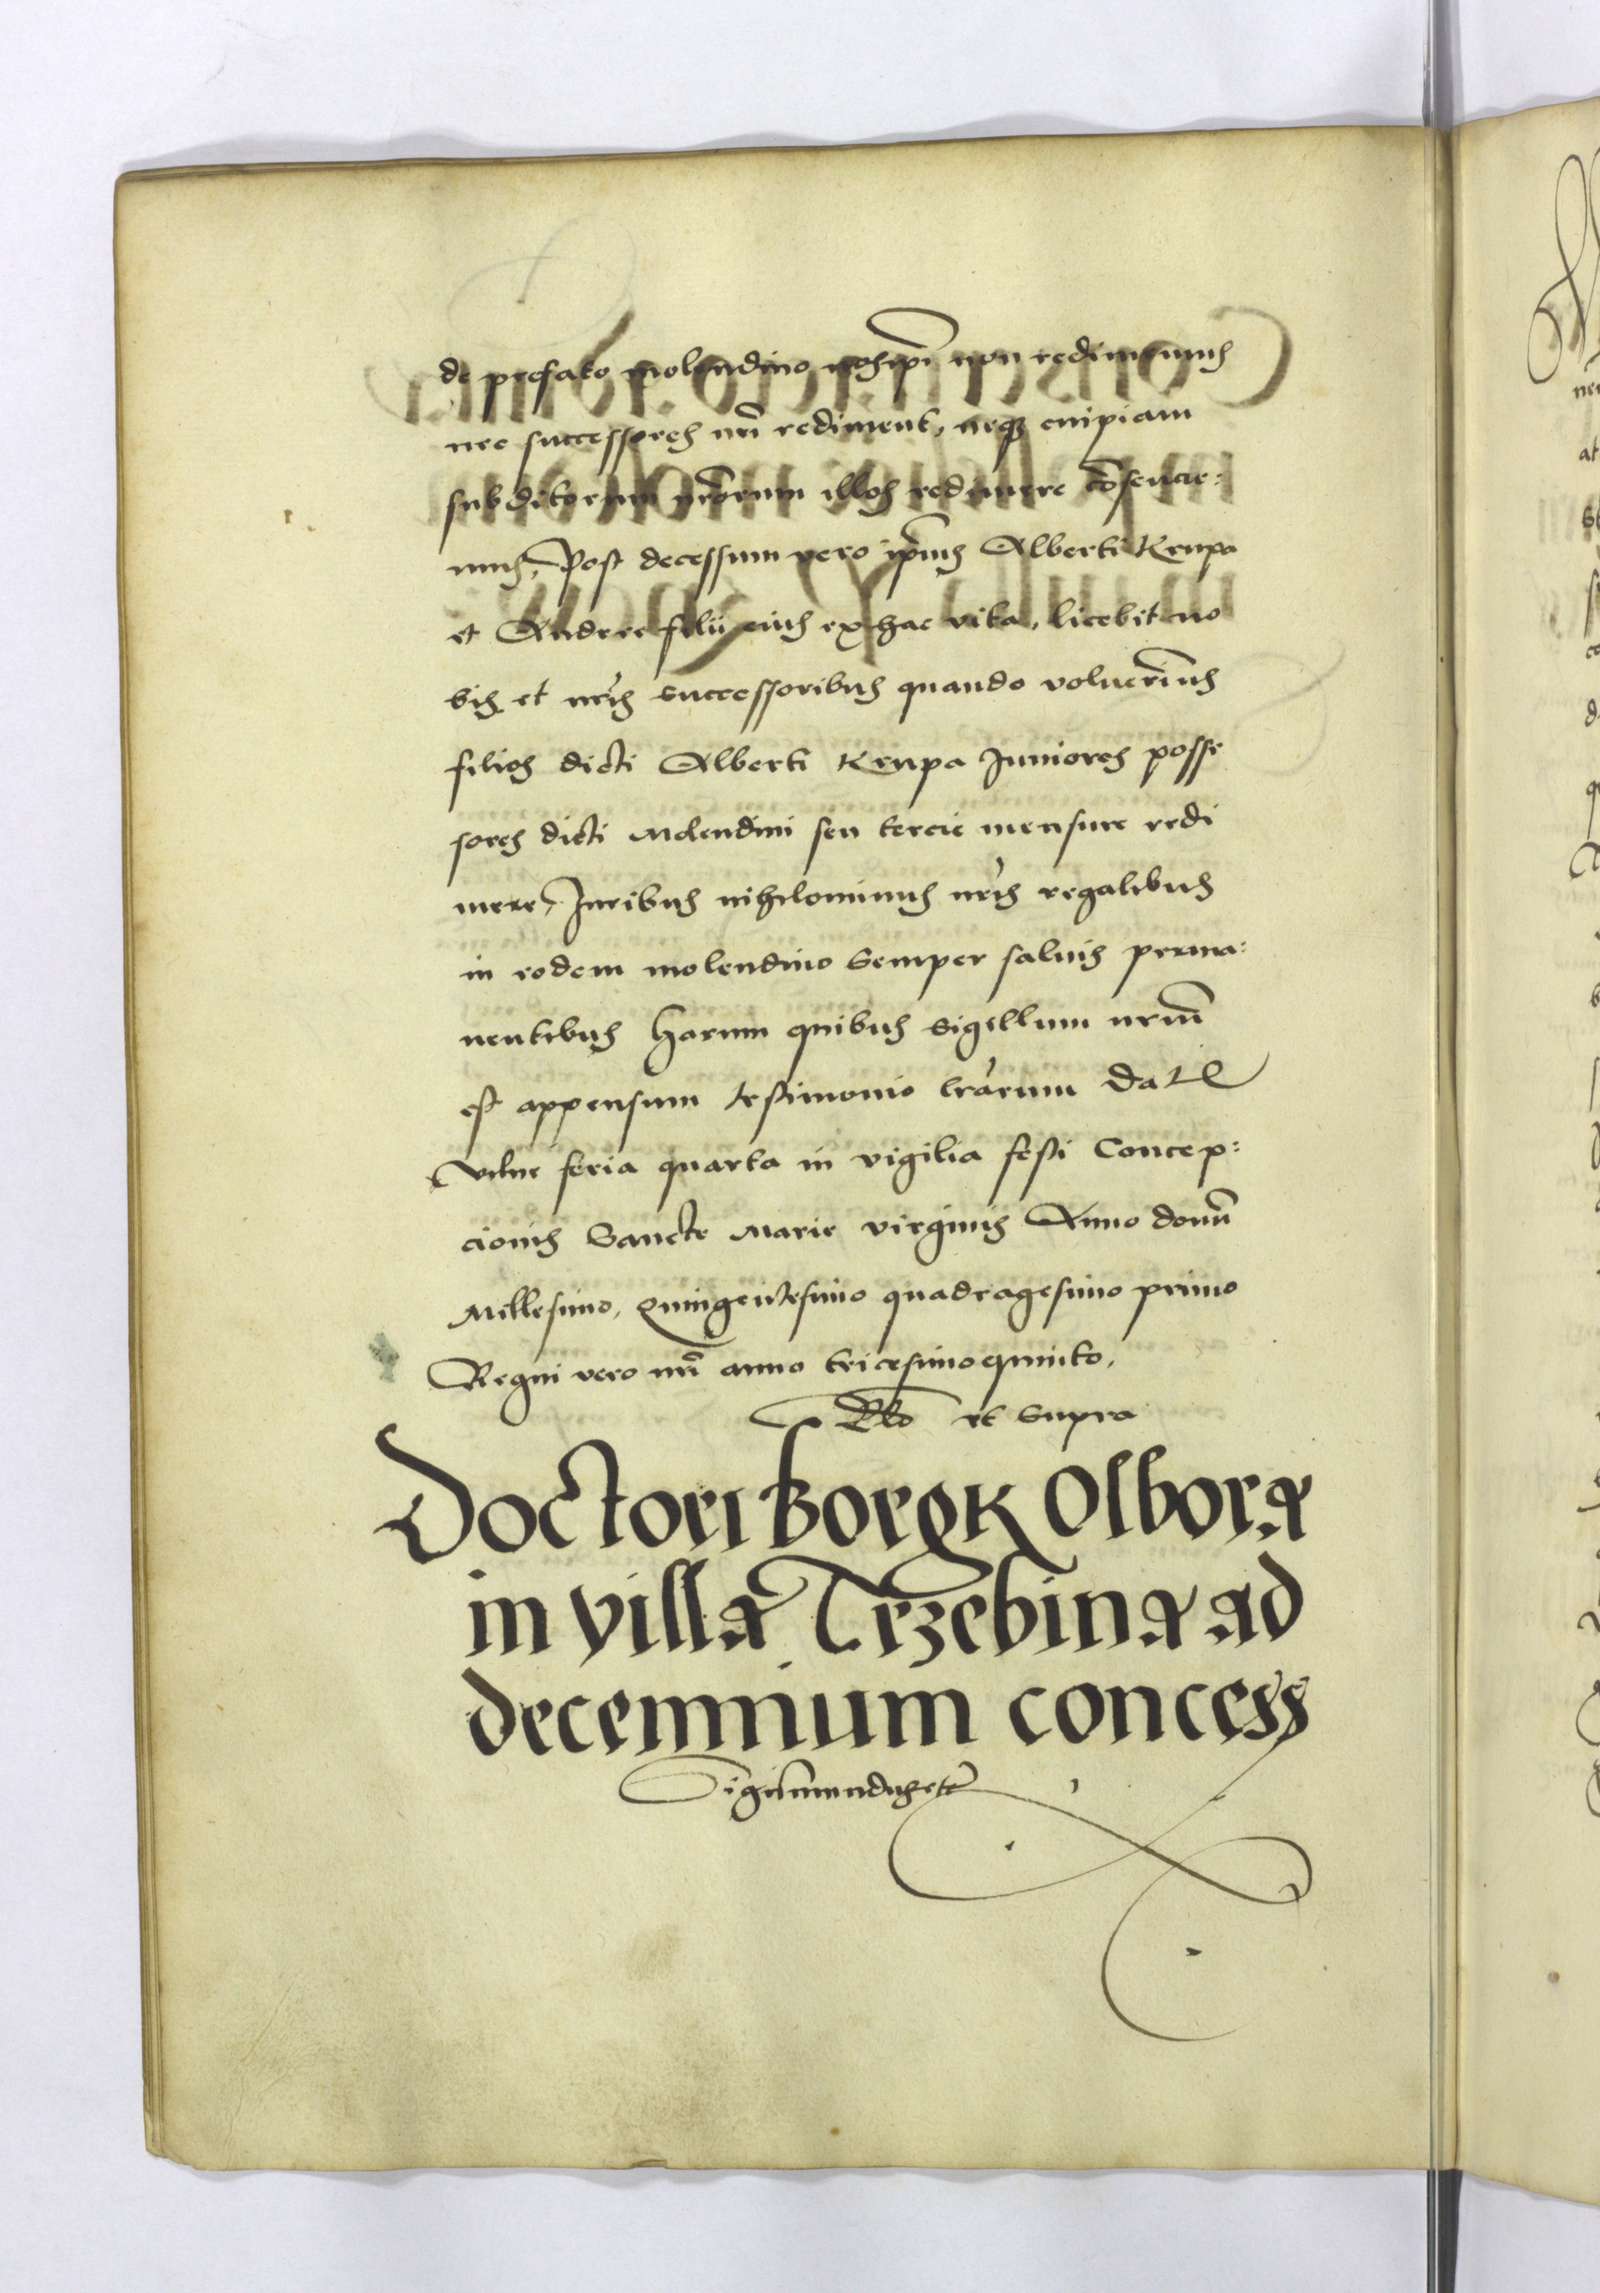 de prefato molendino nosipsi non redimemus
nec successores nr̃i rediment, neqz cuipiam
subditorum nr̃orum illos redimere cõsencie:
mus, Post decessum vero ip̃ius Alberti Krupa
et Andree filii eius ex hac vita, licebit no
bis et nr̃is successoribus quando voluerim̃us
filios dicti Alberti Krupa Iuniores posse
sores dicti Molendini seu tercie mensure redi
mere, Iuribus nihilominus nr̃is regalibus
in eodem molendino semper saluis perma:
nentibus harum quibus sigillum nr̃um
est appensum testimonio lr̃arum Dat
Vilne feria quarta in vigilia festi Concep:
cionis Sancte Marie virginis Anno domĩ
Millesimo, Quingentesimo quadragesimo primo
Regni vero nr̃i anno tricesimoquinto,
Rl̃o ut supra
Doctori Borek Olbora
in villa Trzebina ad
decennium concess
Sigism̃undus etc̃